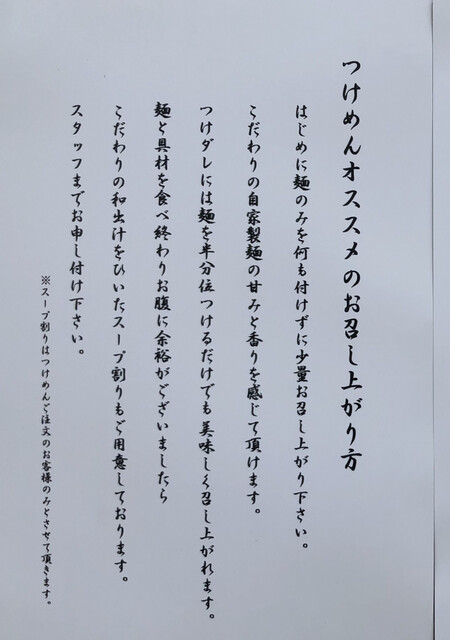 つけめんオススメのお召し上がり方
はじめに麺のみを何も付けずに少量お召し上がり下さい。
こだわりの自家製麺の甘みと香りを感じて頂けます。
つけダレには麺を半分位つけるだけでも美味しく召し上がれます。
麺と具材を食べ終わりお腹に余裕がございましたら
こだわりの和出汁をひいたスープ割りもご用意しております。
スタッフまでお申し付け下さい。
※スープ割りはつけめんご注文のお客様のみとさせて頂きます。